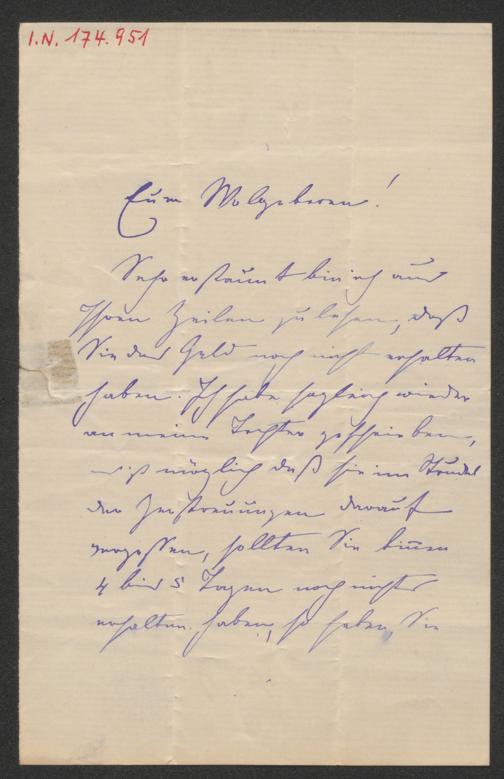 I.N. 174.951
Euer Wolgeboren!
Sehr erstaunt bin ich aus
Ihren Zeilen zu lesen, daß
Sie das Geld noch nicht erhalten
haben. Ich habe sogleich wieder
an meine Tochter geschrieben,
ist möglich daß sie im Strudel
der Zerstreuungen darauf
vergessen, sollten Sie binnen
4 bis 5 Tagen noch nichts
erhalten haben, so haben Sie